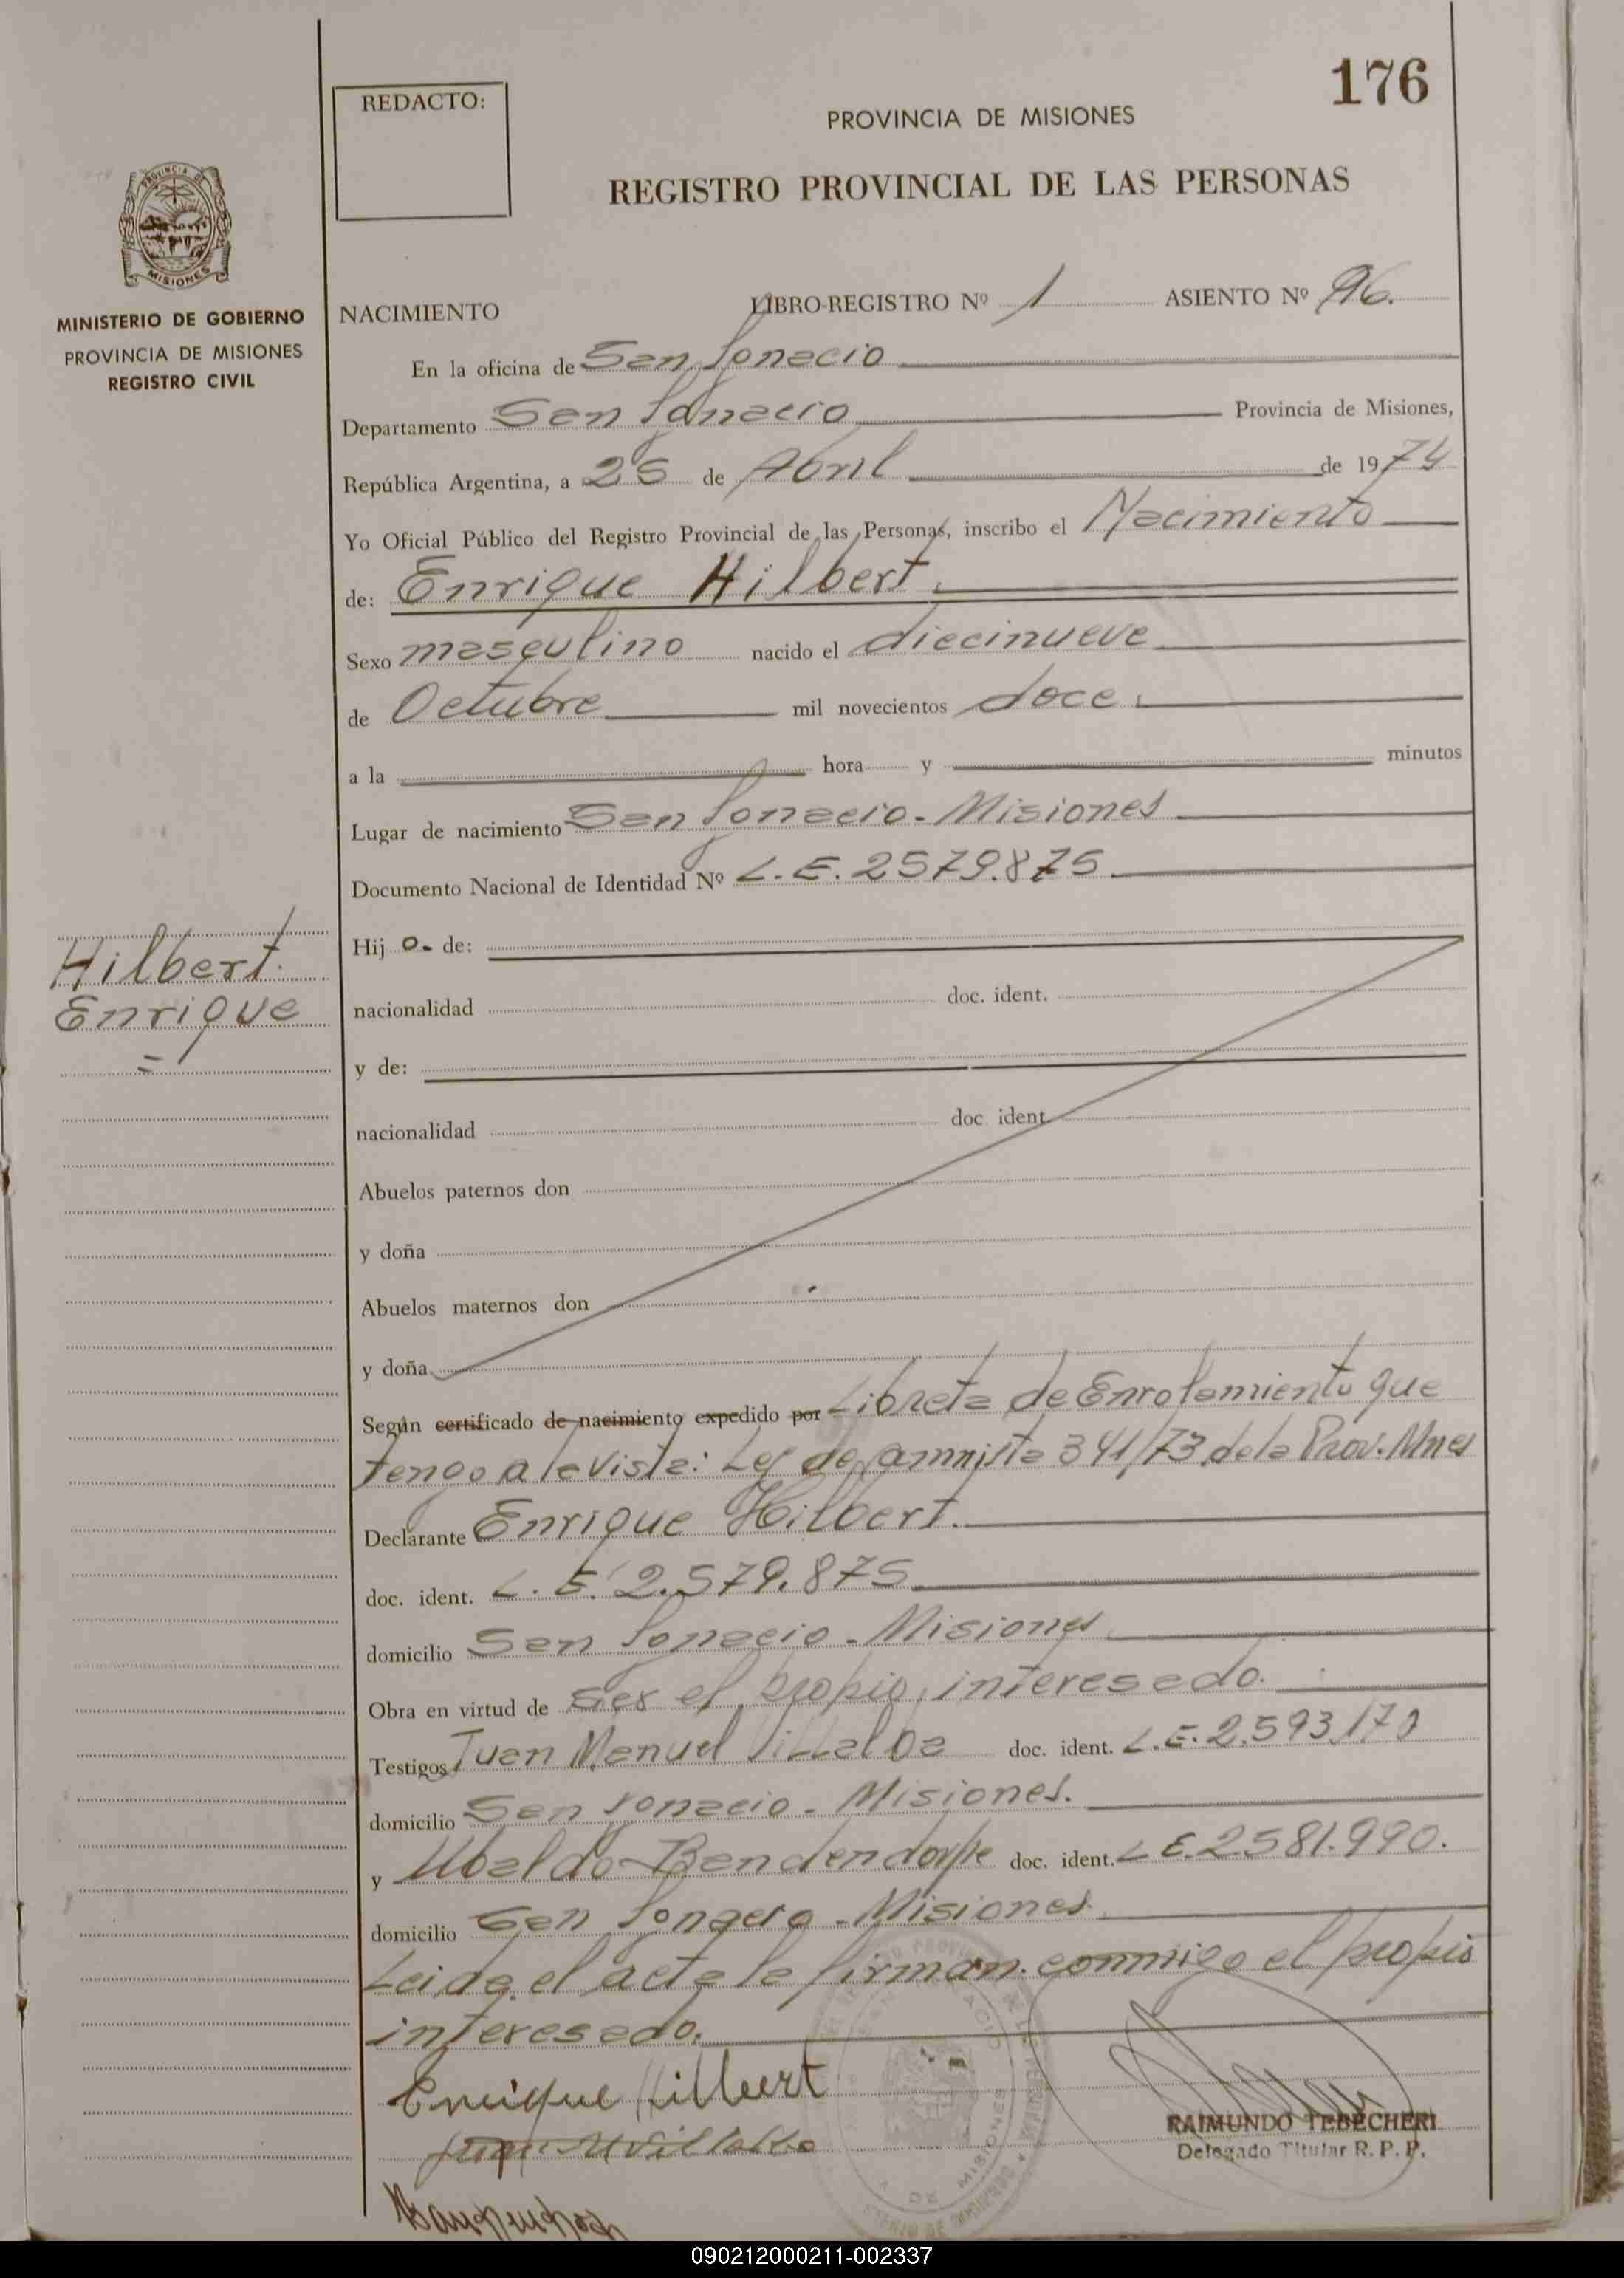 176
REDACTO:
PROVINCIA DE MISIONES
REGISTRO PROVINCIAL DE LAS PERSONAS
MISIONES
MINISTERIO DE GOBIERNO
PROVINCIA DE MISIONES
REGISTRO CIVIL
NACIMIENTO LIBRO-REGISTRO Nº 1 ASIENTO Nº 96.
En la oficina de San Ignacio
Departamento San Ignacio Provincia de Misiones,
República Argentina, a 25 de Abril de 1974
Yo Oficial Público del Registro Provincial de las Personas, inscribo el Nacimiento
de: Enrique Hilbert.
Sexo masculino nacido el diecinueve
de Octubre mil novecientos doce.
a la hora y minutos
Lugar de nacimiento San Ignacio - Misiones
Documento Nacional de Identidad Nº L.E. 2579.875
Hilbert.
Enrique
Hijo- de:
nacionalidad doc. ident.
y de:
nacionalidad doc. ident.
Abuelos paternos don
y doña
Abuelos maternos don
y doña
Según certificado de nacimiento expedido por Libreta de Enrolamiento que
tengo a la vista: Ley de amnista 341/73 de la Prov. Mnes
Declarante Enrique Hilbert.
doc. ident. L. E. 2.579.875
domicilio San Ignacio - Misiones
Obra en virtud de ser el propio interesado.
Testigos Juan Manuel Villalba doc. ident. L.E. 2.593.170
domicilio San Ignacio - Misiones.
y Ubaldo doc. ident. L E. 2.581.990.
domicilio San Ignacio - Misiones
Leida el acta la firman conmigo el propio
interesado.
Enrique Hilbert
RAIMUNDO TEBECHERI
Delegado Titular R. P. P.
090212000211-002337